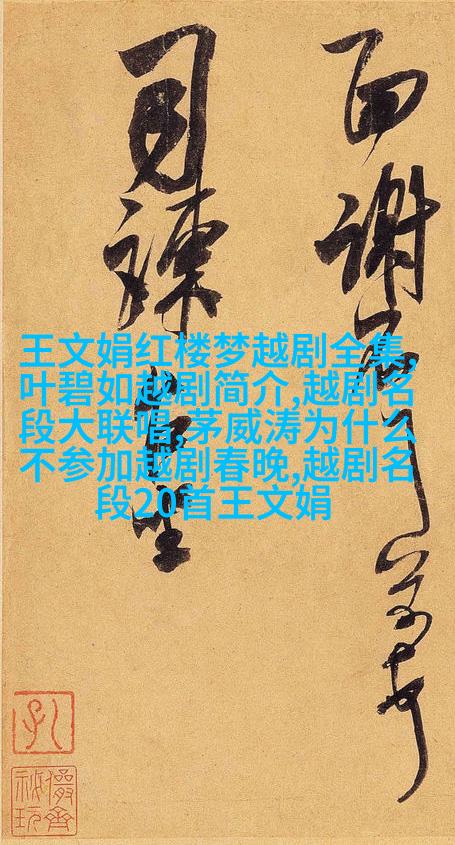 王文娟红楼梦越剧全集,
叶碧如越剧简介,越剧名
段大联唱,茅威涛为什么
不参加越剧春晚,越剧名
段20首王文娟
面謝
司諫坐
儼齋
秘玩